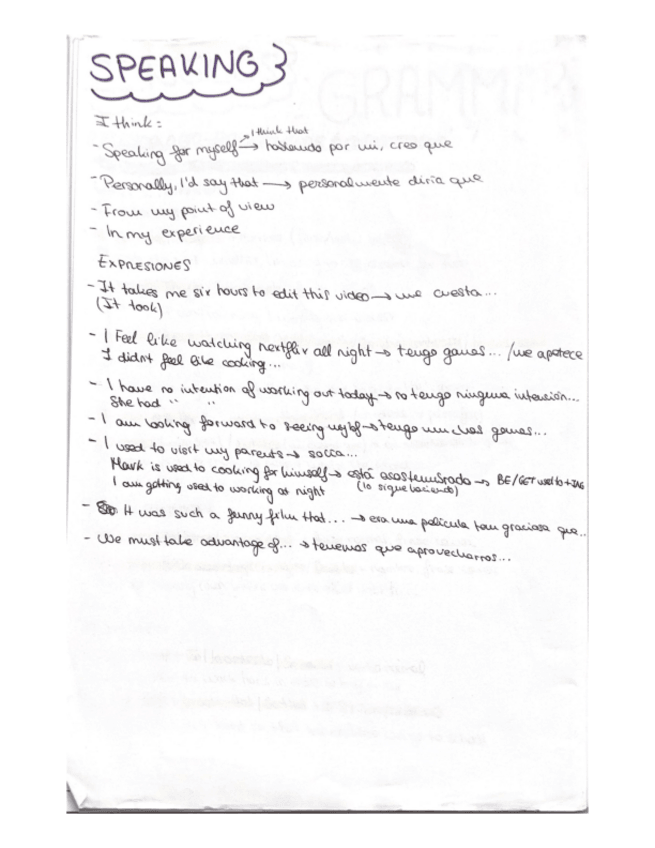 SPEAKING
I think:
I think that
- Speaking for myself → hablando por mi, creo que
- Personally, I'd say that → personalmente diria que
- From my point of view
- In my experience
EXPRESIONES
- It takes me six hours to edit this video → me cuesta...
(It took)
- I Feel like watching nextflix all night → tengo ganas... /me apetece
I didn't feel like cooking...
- I have no intention of working out today → no tengo ninguna intención...
She had " "
- I am looking forward to seeing my bf → tengo muchas ganas...
- I used to visit my parents → solia...
Mark is used to cooking for himself → está acostumbrado → BE/GET used to + ING
I am getting used to working at night (lo sigue haciendo)
- It was such a funny film that... → era una pelicula tan graciosa que...
- We must take advantage of... → tenemos que aprovecharnos...
GRAMM